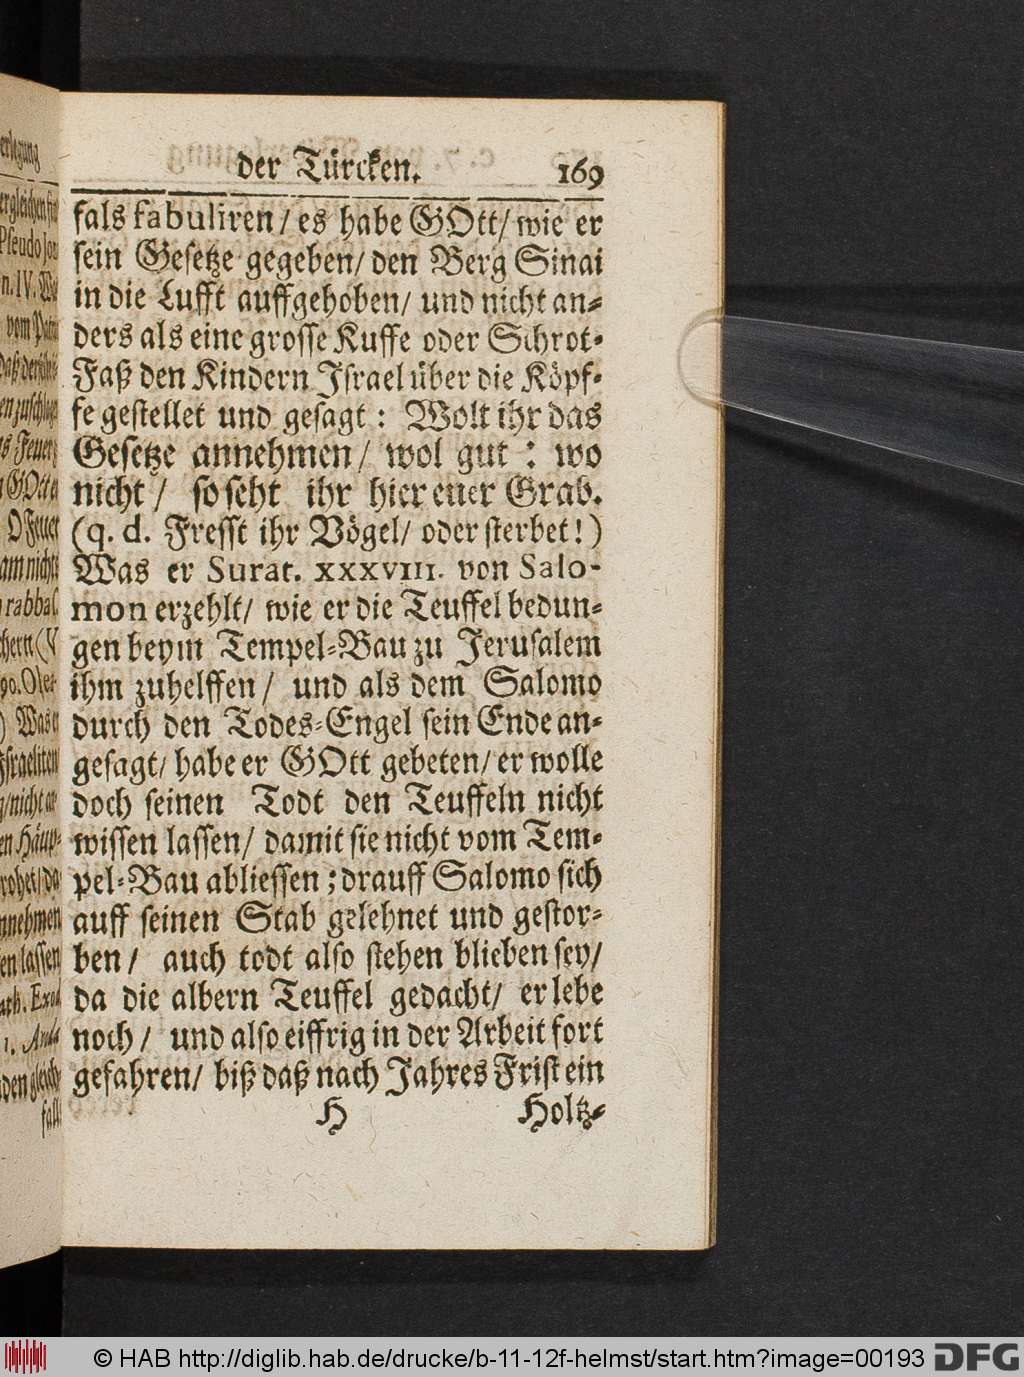 der Türcken. 169
fals fabuliren/ es habe GOtt/ wie er
sein Gesetze gegeben/ den Berg Sinai
in die Lufft auffgehoben/ und nicht an-
ders als eine grosse Kuffe oder Schrot-
Faß den Kindern Israel über die Köpf-
fe gestellet und gesagt: Wolt ihr das
Gesetze annehmen/ wol gut: wo
nicht/ so seht ihr hier euer Grab.
(q. d. Fresst ihr Vögel/ oder sterbet!)
Was er Surat. XXXVIII. von Salo-
mon erzehlt/ wie er die Teuffel bedun-
gen beym Tempel-Bau zu Jerusalem
ihm zuhelffen/ und als dem Salomo
durch den Todes-Engel sein Ende an-
gesagt/ habe er GOtt gebeten/ er wolle
doch seinen Todt den Teuffeln nicht
wissen lassen/ damit sie nicht vom Tem-
pel-Bau abliessen; drauff Salomo sich
auff seinen Stab gelehnet und gestor-
ben/ auch todt also stehen blieben sey/
da die albern Teuffel gedacht/ er lebe
noch/ und also eiffrig in der Arbeit fort
gefahren/ biß daß nach Jahres Frist ein
H Holtz-
© HAB http://diglib.hab.de/drucke/b-11-12f-helmst/start.htm?image=00193 DFG